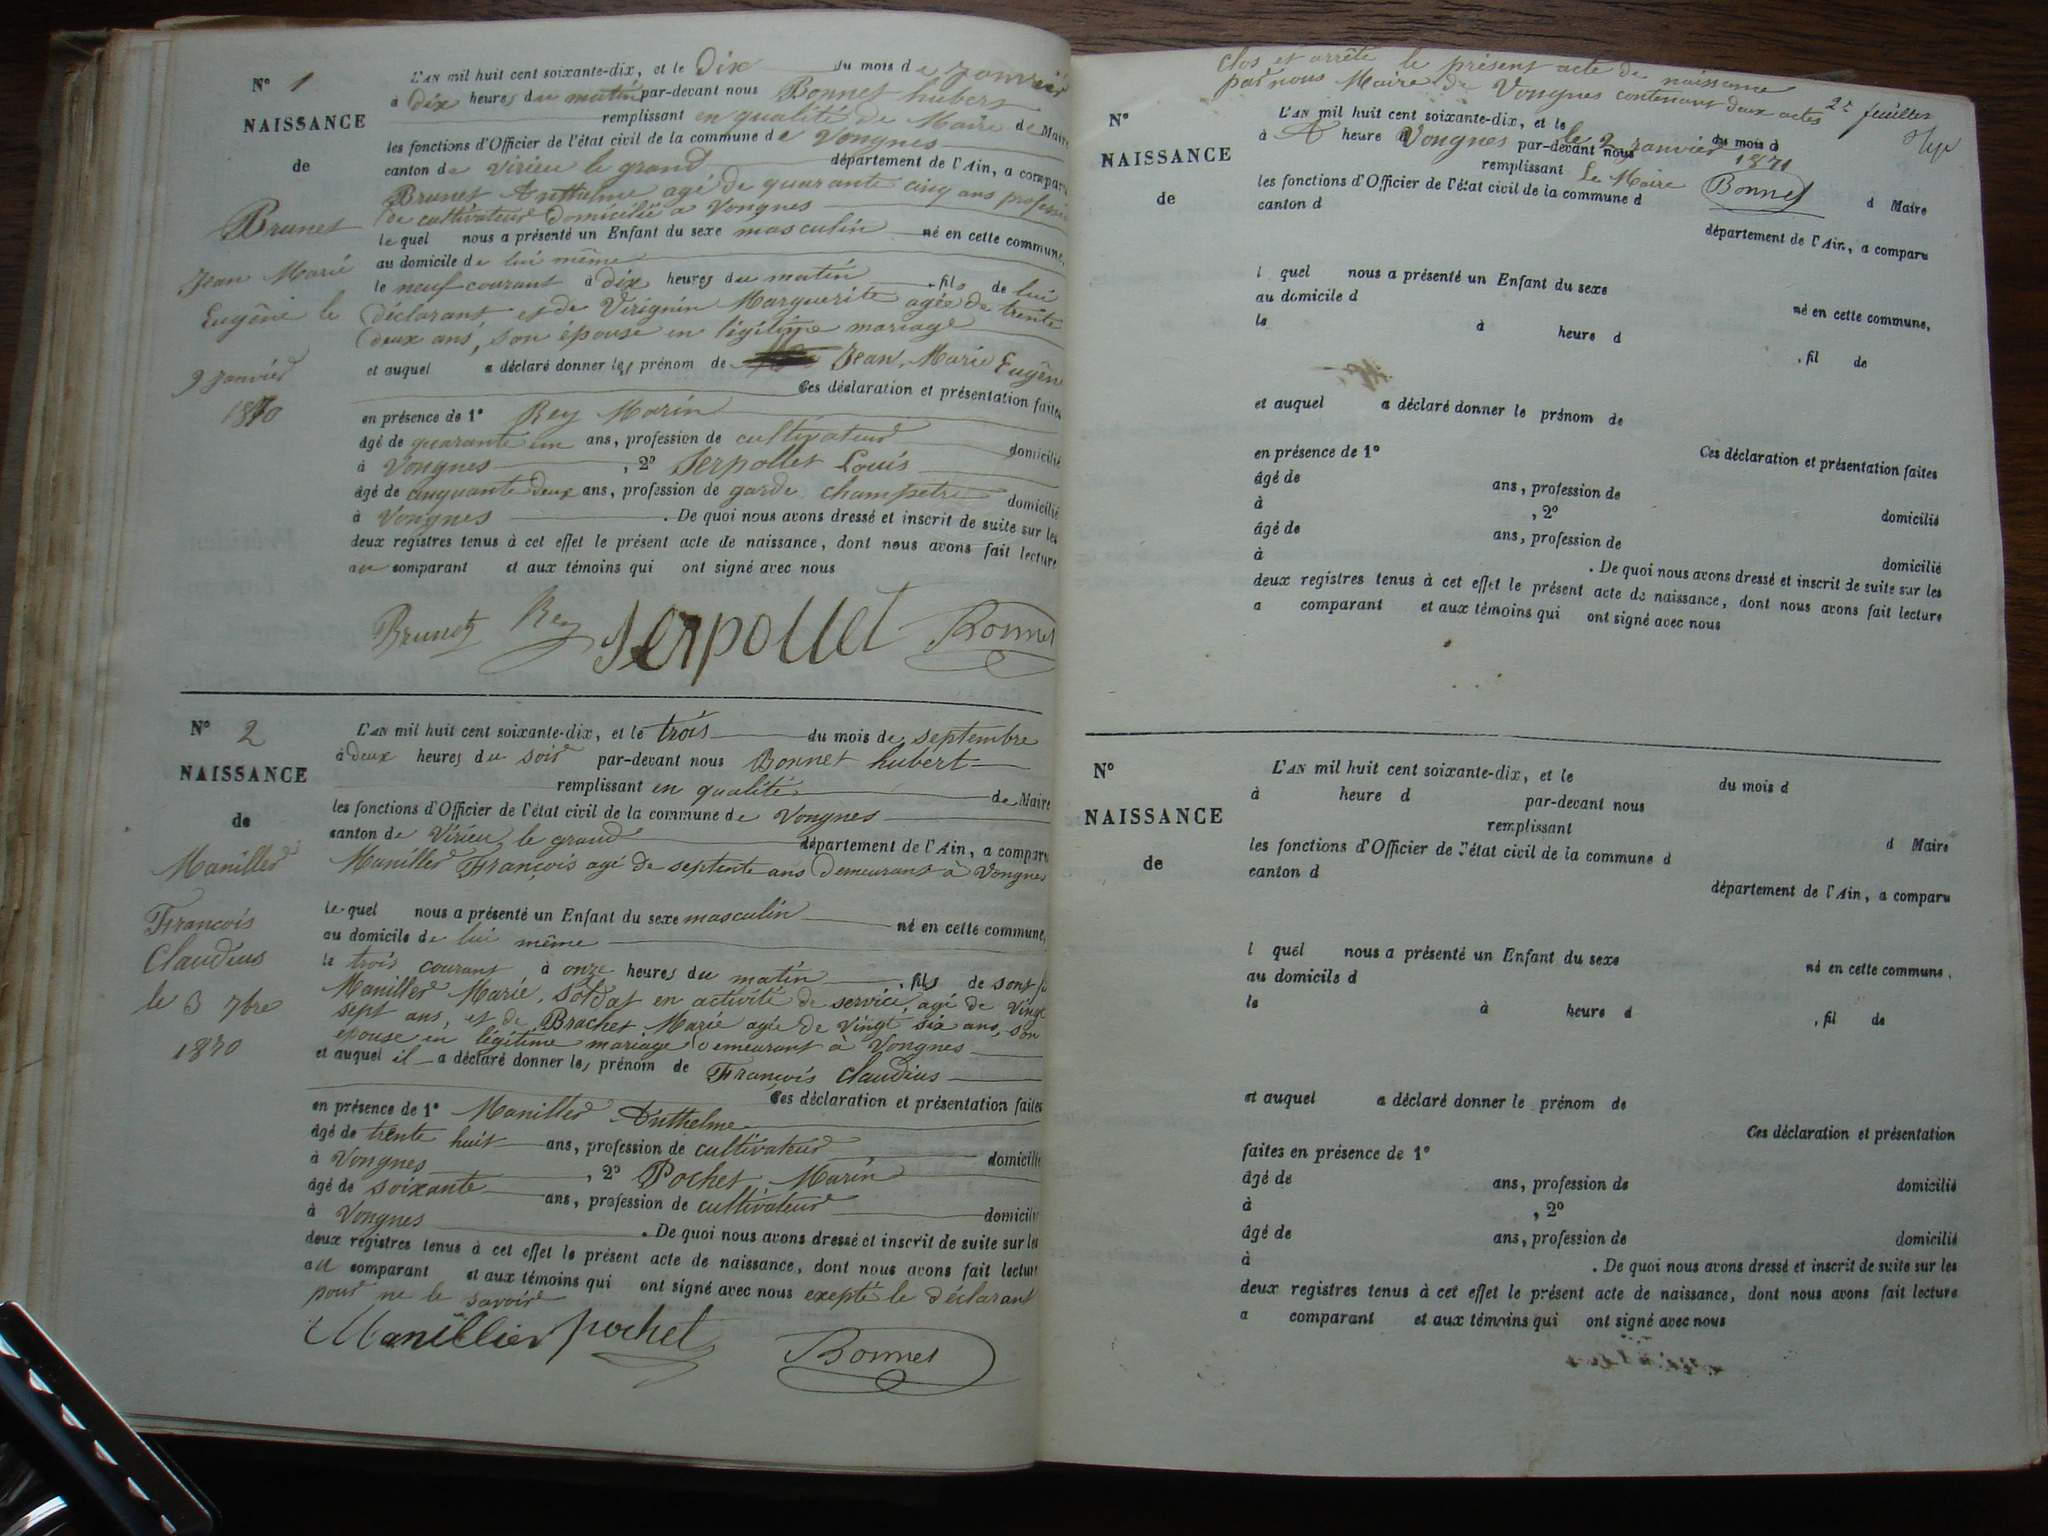 N° 1
NAISSANCE
de
Brunet
Jean Marie
Eugène le
9 Janvier
1870
L'AN mil huit cent soixante-dix, et le Dix du mois de Janvier
à dix heures du matin par-devant nous Bonnet hubert
remplissant en qualité de Maire de Maire
les fonctions d'Officier de l'état civil de la commune de Vongnes
canton de Virieu le grand département de l'Ain, a comparu
Brunet Anthelme agé de quarante cinq ans profession
de cultivateur domicilié a Vongnes
le quel nous a présenté un Enfant du sexe masculin né en cette commune,
au domicile de lui même
le neuf courant à dix heures du matin , fils de lui
déclarant et de Virignin Marguerite agée de trente
deux ans, son épouse en légitime mariage
et auquel a déclaré donner les prénom de Jean, Marie Eugène
Ces déclaration et présentation faites
en présence de 1° Rey Marin
âgé de quarante un ans, profession de cultivateur domicilié
à Vongnes , 2° Serpollet Louis
âgé de cinquante deux ans, profession de garde champetre domicilié
à Vongnes . De quoi nous avons dressé et inscrit de suite sur les
deux registres tenus à cet effet le présent acte de naissance, dont nous avons fait lecture
au comparant et aux témoins qui ont signé avec nous
Brunet Rey Serpollet Bonnet
N° 2
NAISSANCE
de
Manillier
François
Claudius
le 3 7bre
1870
L'AN mil huit cent soixante-dix, et le trois du mois de septembre
à deux heures du soir par-devant nous Bonnet hubert
remplissant en qualité de Maire
les fonctions d'Officier de l'état civil de la commune de Vongnes
canton de Virieu le grand département de l'Ain, a comparu
Manillier François agé de septente ans demeurant à Vongnes
le quel nous a présenté un Enfant du sexe masculin né en cette commune,
au domicile de lui même
le trois courant à onze heures du matin , fils de sont
Manillier Marie, soldat en activité de service, agé de vingt
sept ans, et de Brachet Marie agée de vingt six ans, son
épouse en légitime mariage demeurant à Vongnes
et auquel il a déclaré donner les prénom de François Claudius
Ces déclaration et présentation faites
en présence de 1° Manillier Anthelme
âgé de trente huit ans, profession de cultivateur domicilié
à Vongnes , 2° Pochet Marin
âgé de soixante ans, profession de cultivateur domicilié
à Vongnes . De quoi nous avons dressé et inscrit de suite sur les
deux registres tenus à cet effet le présent acte de naissance, dont nous avons fait lecture
au comparant et aux témoins qui ont signé avec nous exepté le déclarant
pour ne le savoir
Manillier pochet Bonnet
Clos et arrêté le présent acte de naissance
par nous Maire de Vongnes contenant deux actes
2e feuillet
N°
NAISSANCE
de
L'AN mil huit cent soixante-dix, et le du mois d
à A heure d Vongnes par-devant nous le 2 Janvier 1871
remplissant Le Maire d Maire
les fonctions d'Officier de l'état civil de la commune d Bonnet
canton d département de l'Ain, a comparu
l quel nous a présenté un Enfant du sexe né en cette commune,
au domicile d
le à heure d , fil de
et auquel a déclaré donner le prénom de
Ces déclaration et présentation faites
en présence de 1°
âgé de ans, profession de domicilié
à , 2°
âgé de ans, profession de domicilié
à . De quoi nous avons dressé et inscrit de suite sur les
deux registres tenus à cet effet le présent acte de naissance, dont nous avons fait lecture
a comparant et aux témoins qui ont signé avec nous
N°
NAISSANCE
de
L'AN mil huit cent soixante-dix, et le du mois d
à heure d par-devant nous
remplissant d Maire
les fonctions d'Officier de l'état civil de la commune d
canton d département de l'Ain, a comparu
l quel nous a présenté un Enfant du sexe né en cette commune,
au domicile d
le à heure d , fil de
et auquel a déclaré donner le prénom de
Ces déclaration et présentation
faites en présence de 1°
âgé de ans, profession de domicilié
à , 2°
âgé de ans, profession de domicilié
à . De quoi nous avons dressé et inscrit de suite sur les
deux registres tenus à cet effet le présent acte de naissance, dont nous avons fait lecture
a comparant et aux témoins qui ont signé avec nous